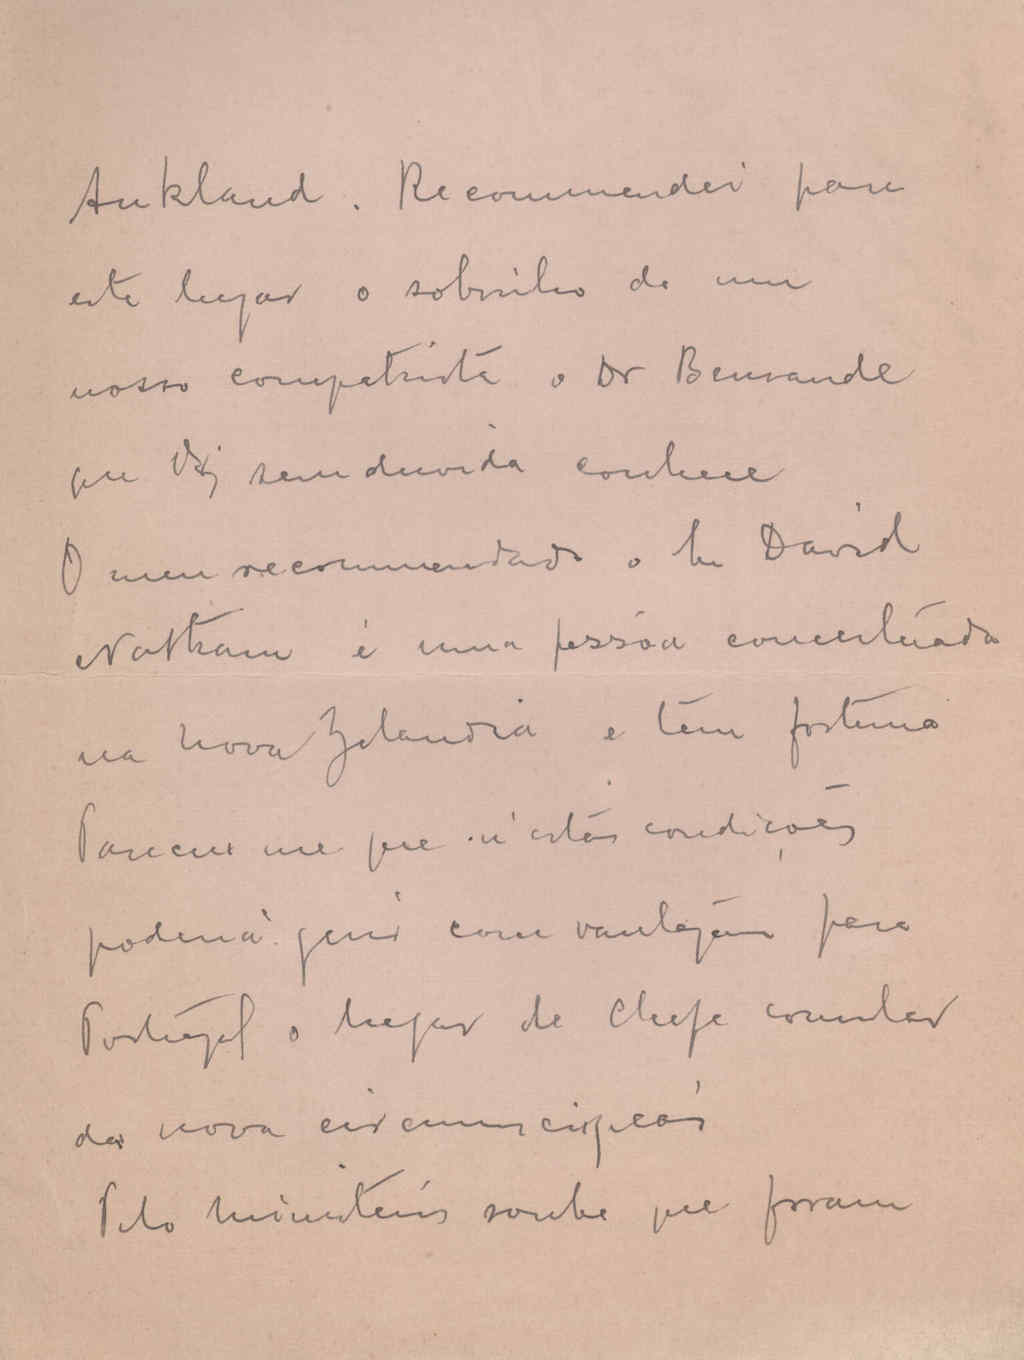 Aukland. Recommendei para
este lugar o sobrinho de um
nosso compatriota o Dr Bensaude
que VEx sem duvida conhece
O meu recommendado o Sr David
Nathan é uma pessôa conceituada
na Nova Zelandia e tem fortuna
Pareceu me que n'estas condições
poderia gerir com vantagem para
Portugal o lugar de Chefe consular
da nova circumscripção
Pelo ministerio soube que foram